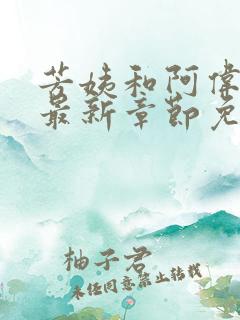 芳姨和阿伟
最新章节免
柚子君
未经同意禁止转载